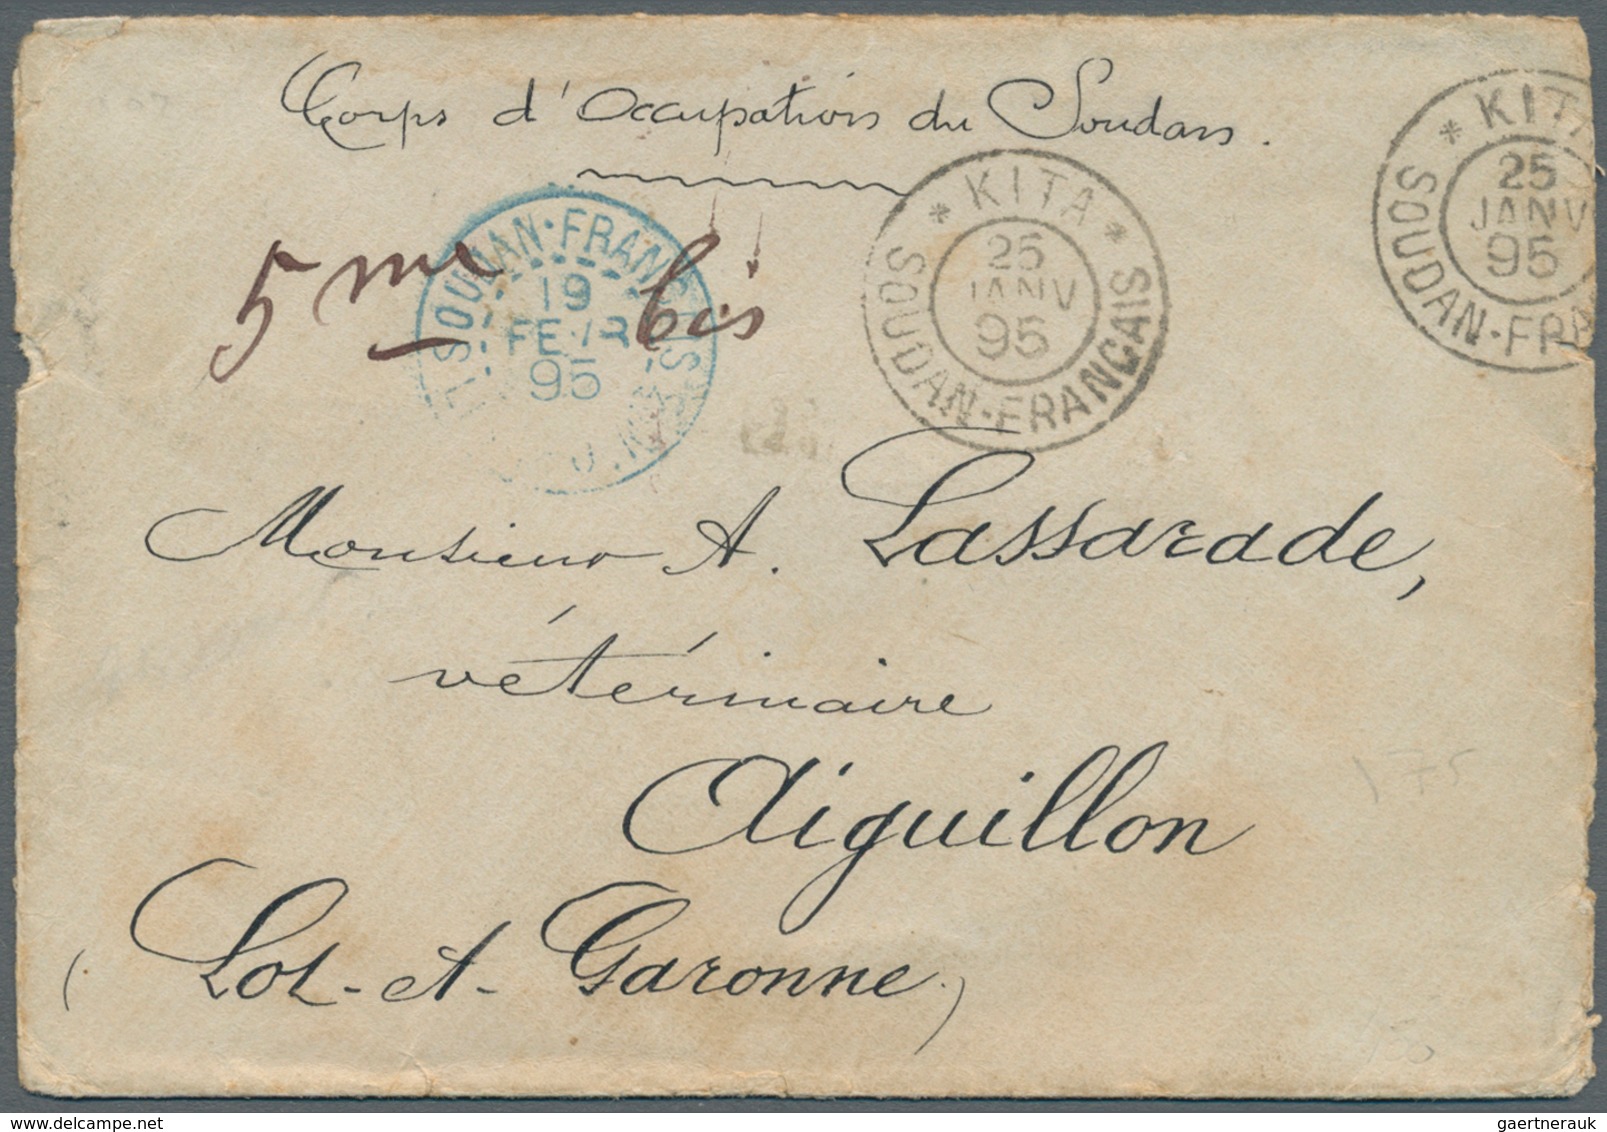 Corps d'Occupation du Soudan.
* KITA *
25
JANV
95
SOUDAN-FRANÇAIS
* KITA
25
JANV
95
SOUDAN-FRA
SOUDAN·FRANC
19
FEVR
95
5me bis
Monsieur A. Lassarade,
vétérinaire
Aiguillon
175
(Lot-et-Garonne)
gaertnerauk @ delcampe.net